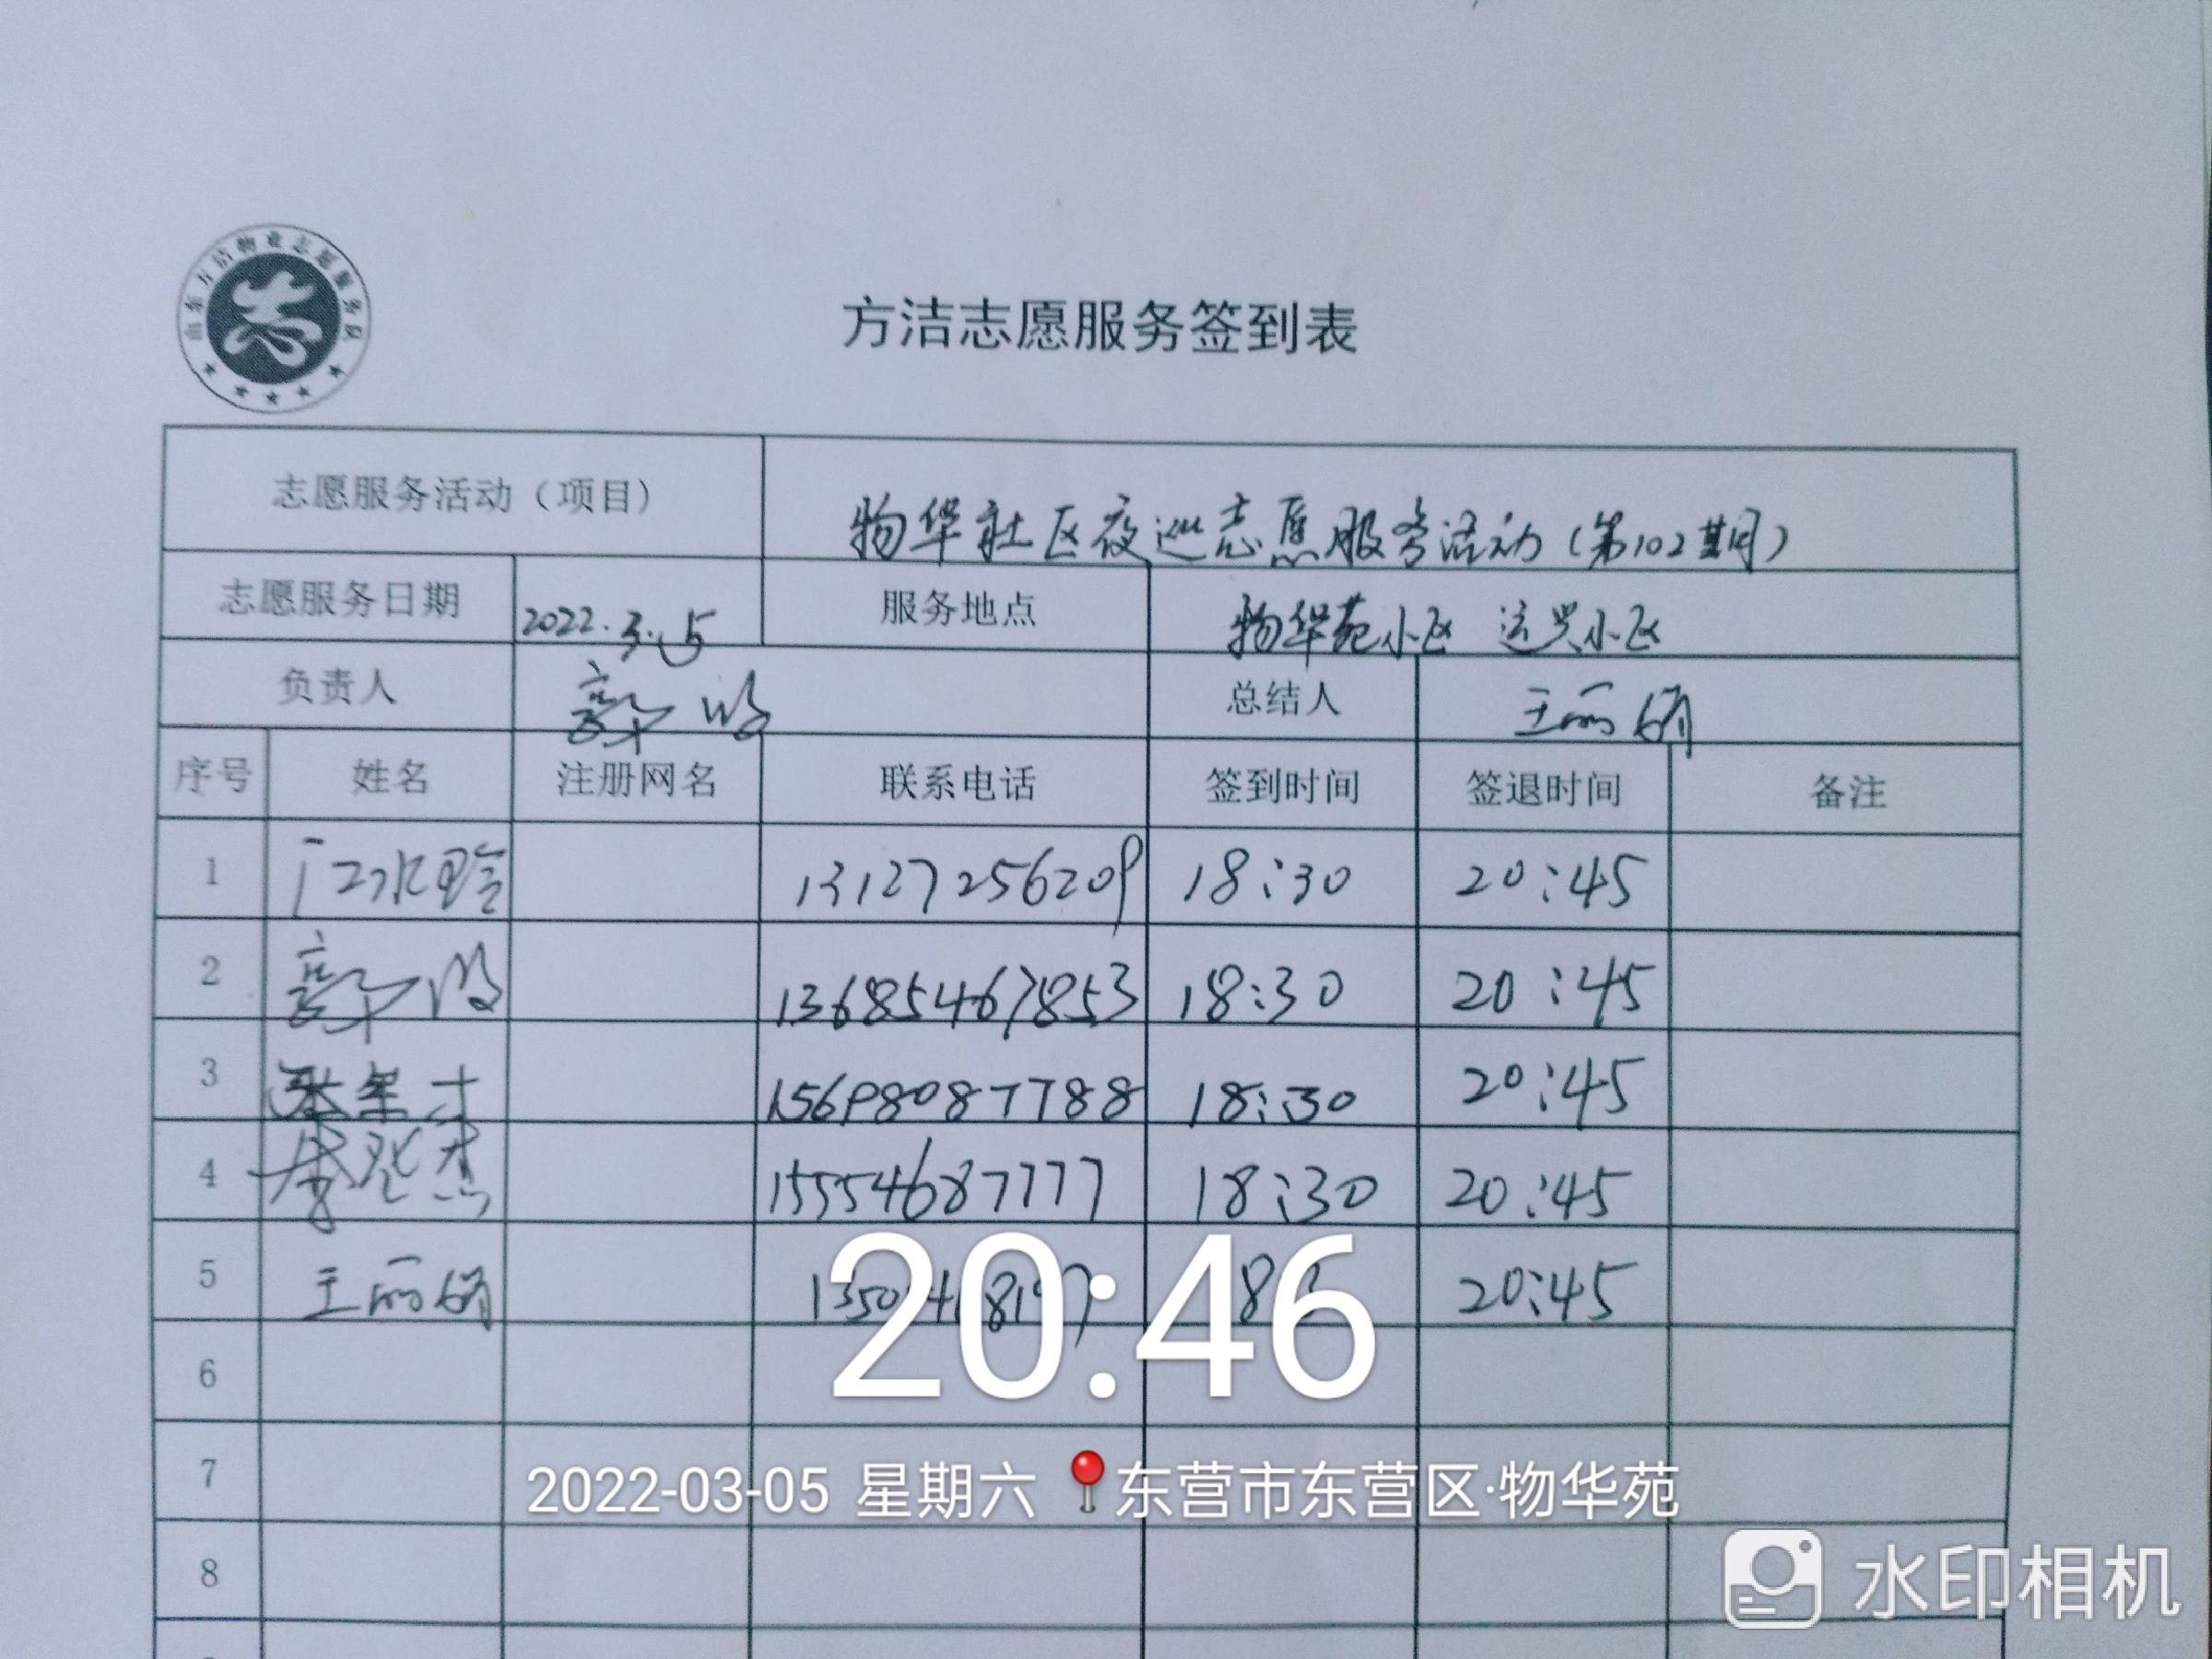 山东方洁物业志愿服务队
方洁志愿服务签到表
志愿服务活动（项目） 物华社区夜巡志愿服务活动（第102期）
志愿服务日期 2022.3.5 服务地点 物华苑小区 运兴小区
负责人 总结人 王丽娟
序号 姓名 注册网名 联系电话 签到时间 签退时间 备注
1 13127256209 18:30 20:45
2 13685467853 18:30 20:45
3 15698087788 18:30 20:45
4 15554687777 18:30 20:45
5 王丽娟 20:45
20:46
6
7
2022-03-05 星期六 东营市东营区·物华苑
8
水印相机